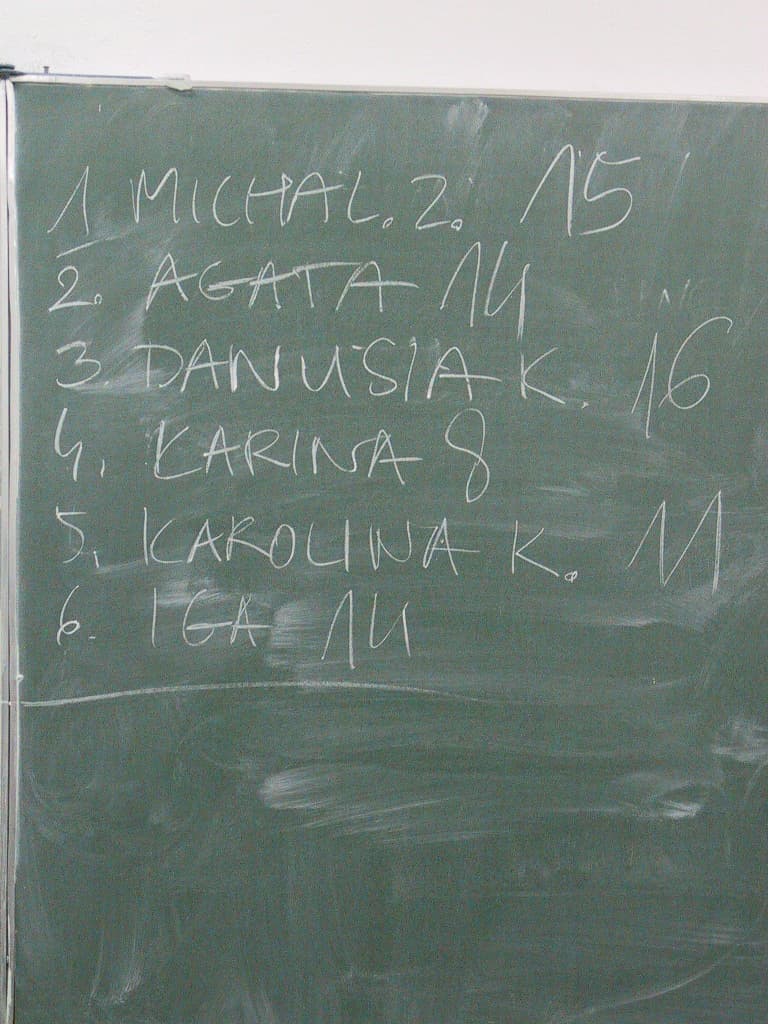 1 MICHAL. Z. 15
2. AGATA 14
3. DANUSIA K. 16
4. KARINA 8
5. KAROLINA K. 11
6. IGA 14